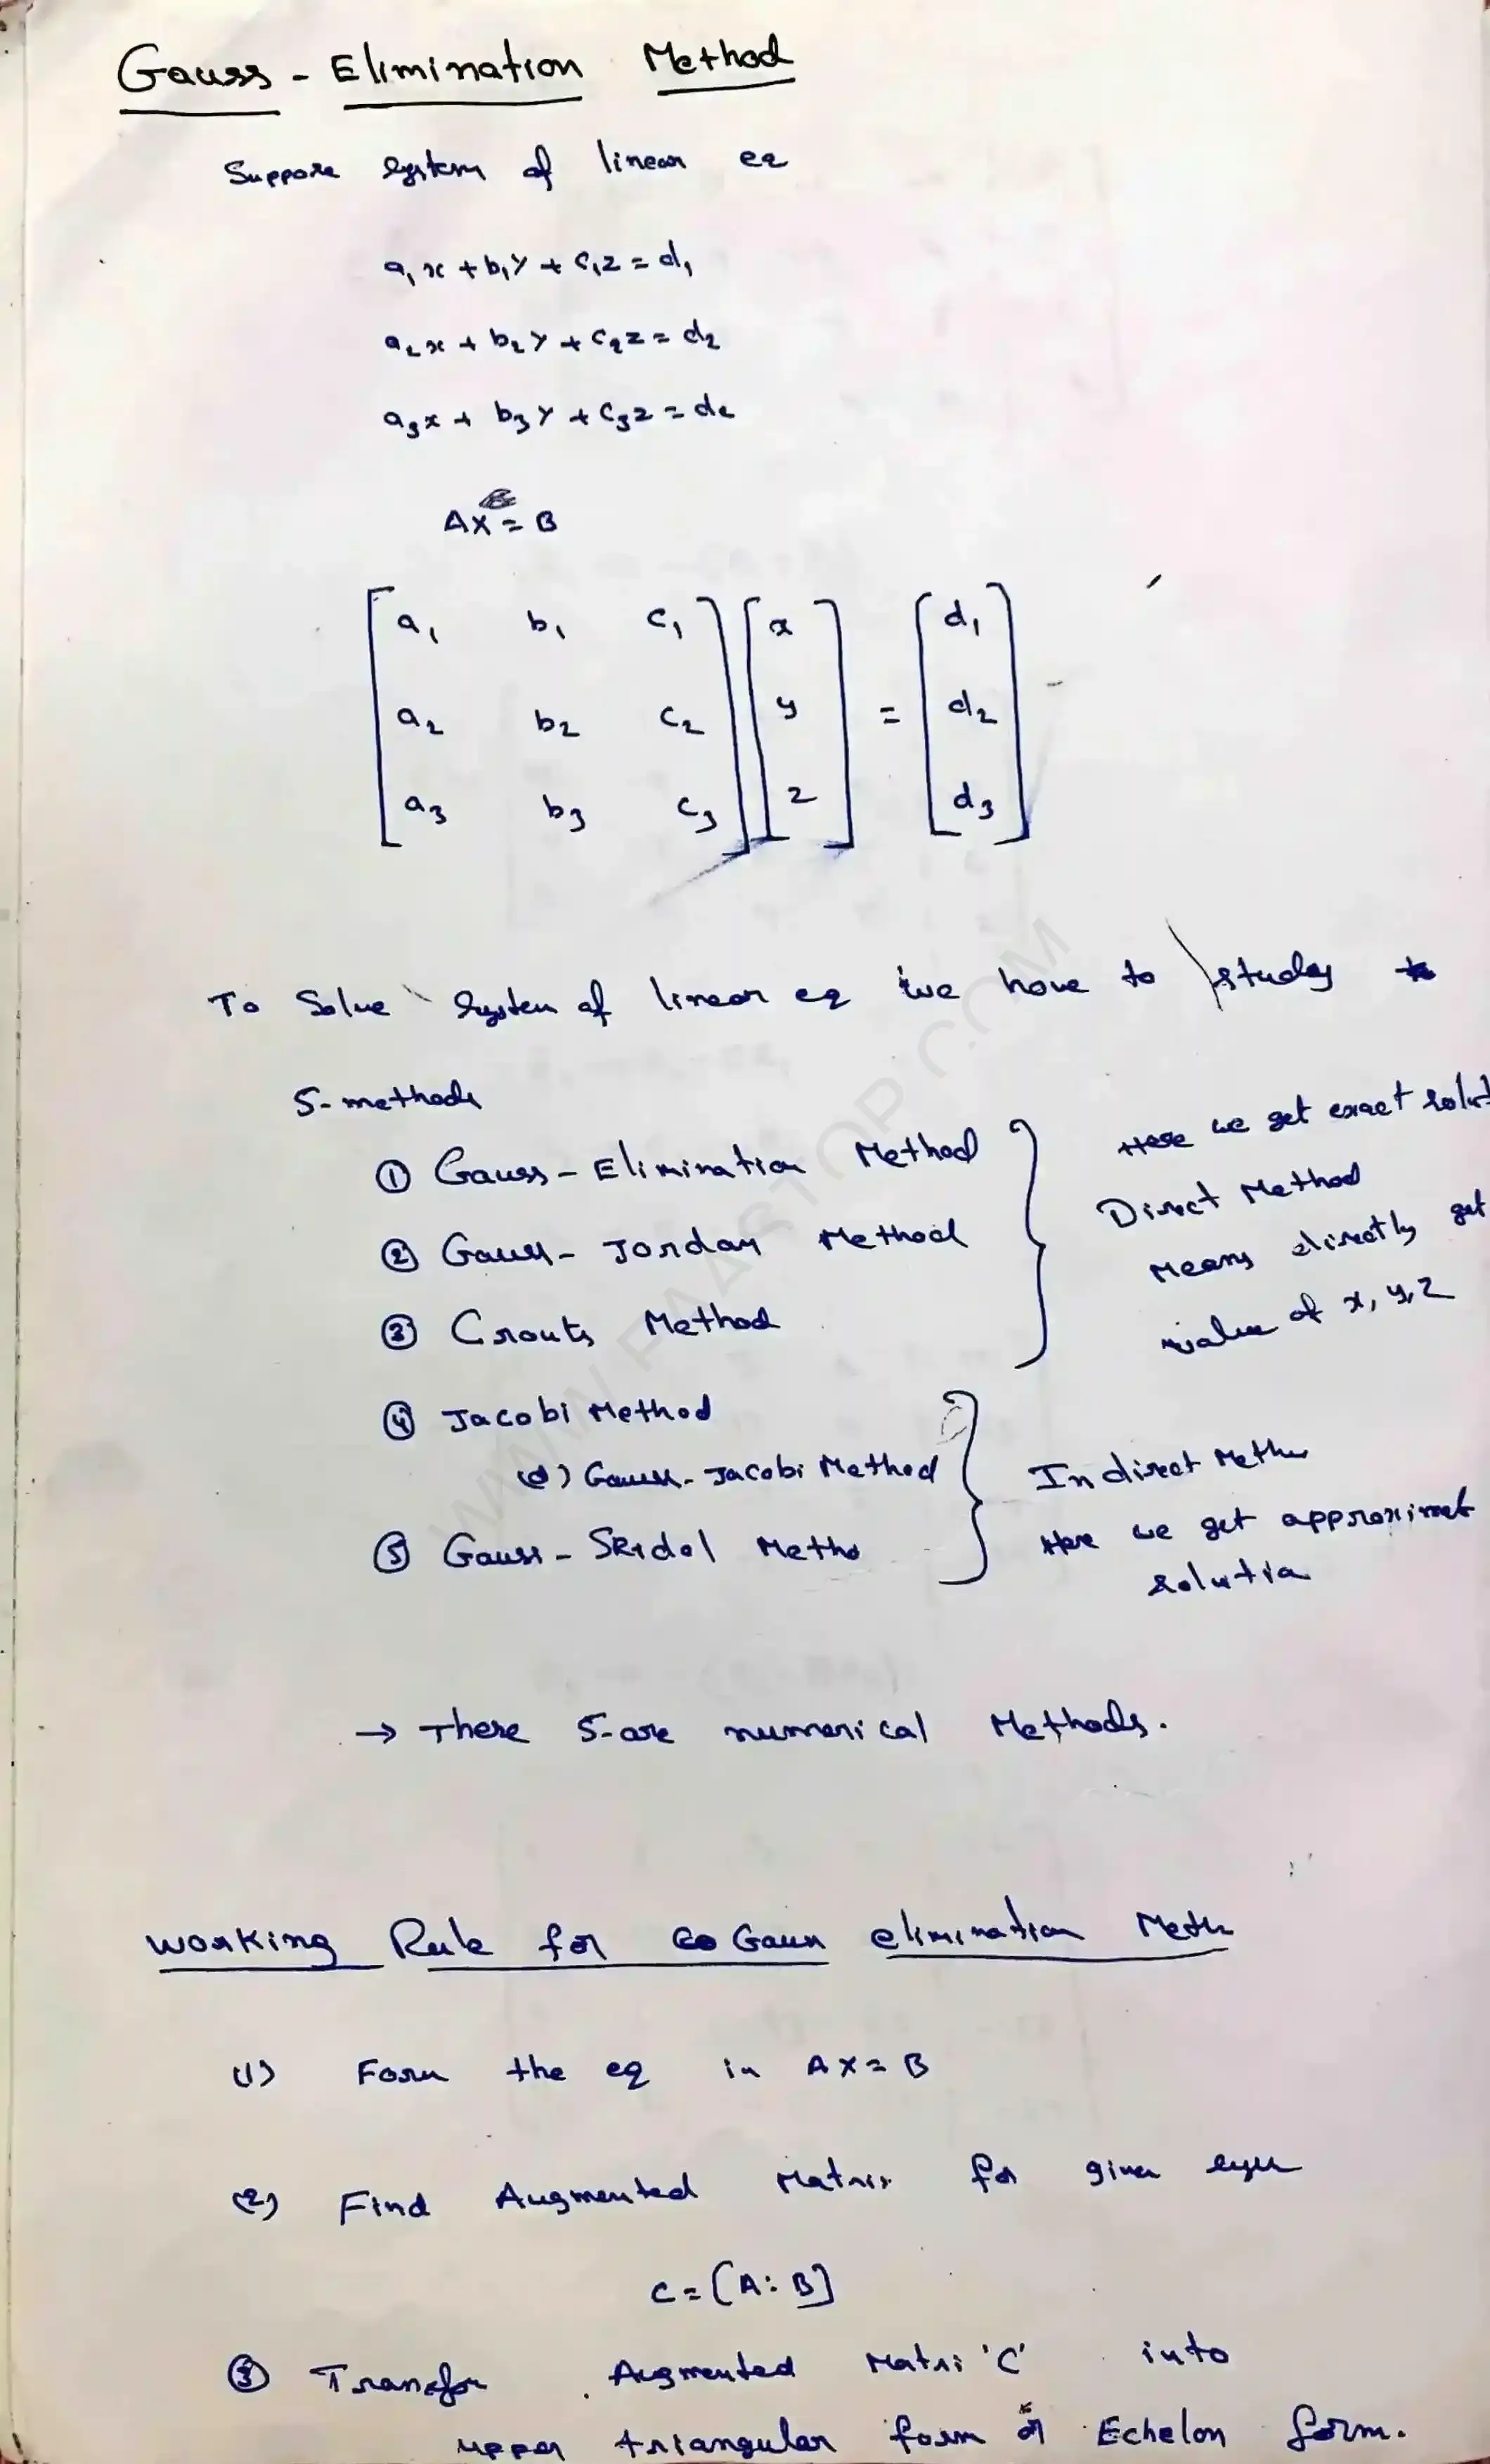 Gauss - Elimination Method
Suppose system of linear eq
a₁x + b₁y + c₁z = d₁
a₂x + b₂y + c₂z = d₂
a₃x + b₃y + c₃z = d₂
AX = B
[a₁ b₁ c₁] [x] = [d₁]
[a₂ b₂ c₂] [y] = [d₂]
[a₃ b₃ c₃] [z] = [d₃]
To Solve system of linear eq we have to study
5-methods
① Gauss-Elimination Method
② Gauss-Jordan Method
③ Crouts Method
Here we get exact solut
Direct Method
Means directly get
value of x, y, z
④ Jacobi Method
(or) Gauss-Jacobi Method
⑤ Gauss-Seidel Metho
Indirect Metho
Here we get approximet
solution
→ These 5-are numerical Methods.
Working Rule for Gauss elimination Meth
(1) Form the eq in AX = B
(2) Find Augmented Matrix for given
C = [A : B]
③ Transfor Augmented Matri 'C' into
upper triangular form or Echelon form.
WWW.PAASTOP.COM